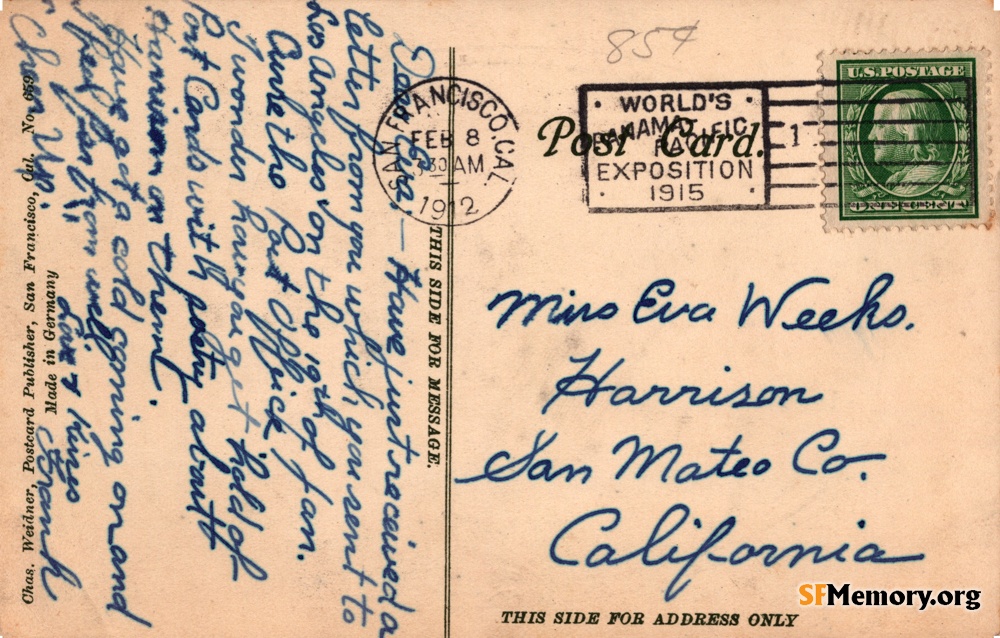 85¢
SAN FRANCISCO, CAL.
FEB 8
7:30 AM
1912
WORLD'S
PANAMA PACIFIC
EXPOSITION
1915
1
U.S. POSTAGE
Post Card.
Dear Eva — Have just received a
letter from you which you sent to
Los Angeles on the 19th of Jan.
Under the Post Office
I wonder how you get hold of
Post Cards with poetry about
Harrison on them.
Have got a cold coming on and
feel far from well.
Love & kisses
Cheer Up!
THIS SIDE FOR MESSAGE.
Chas. Weidner, Postcard Publisher, San Francisco, Cal. No. 659
Made in Germany
Miss Eva Weeks.
Harrison
San Mateo Co.
California
THIS SIDE FOR ADDRESS ONLY
SFMemory.org